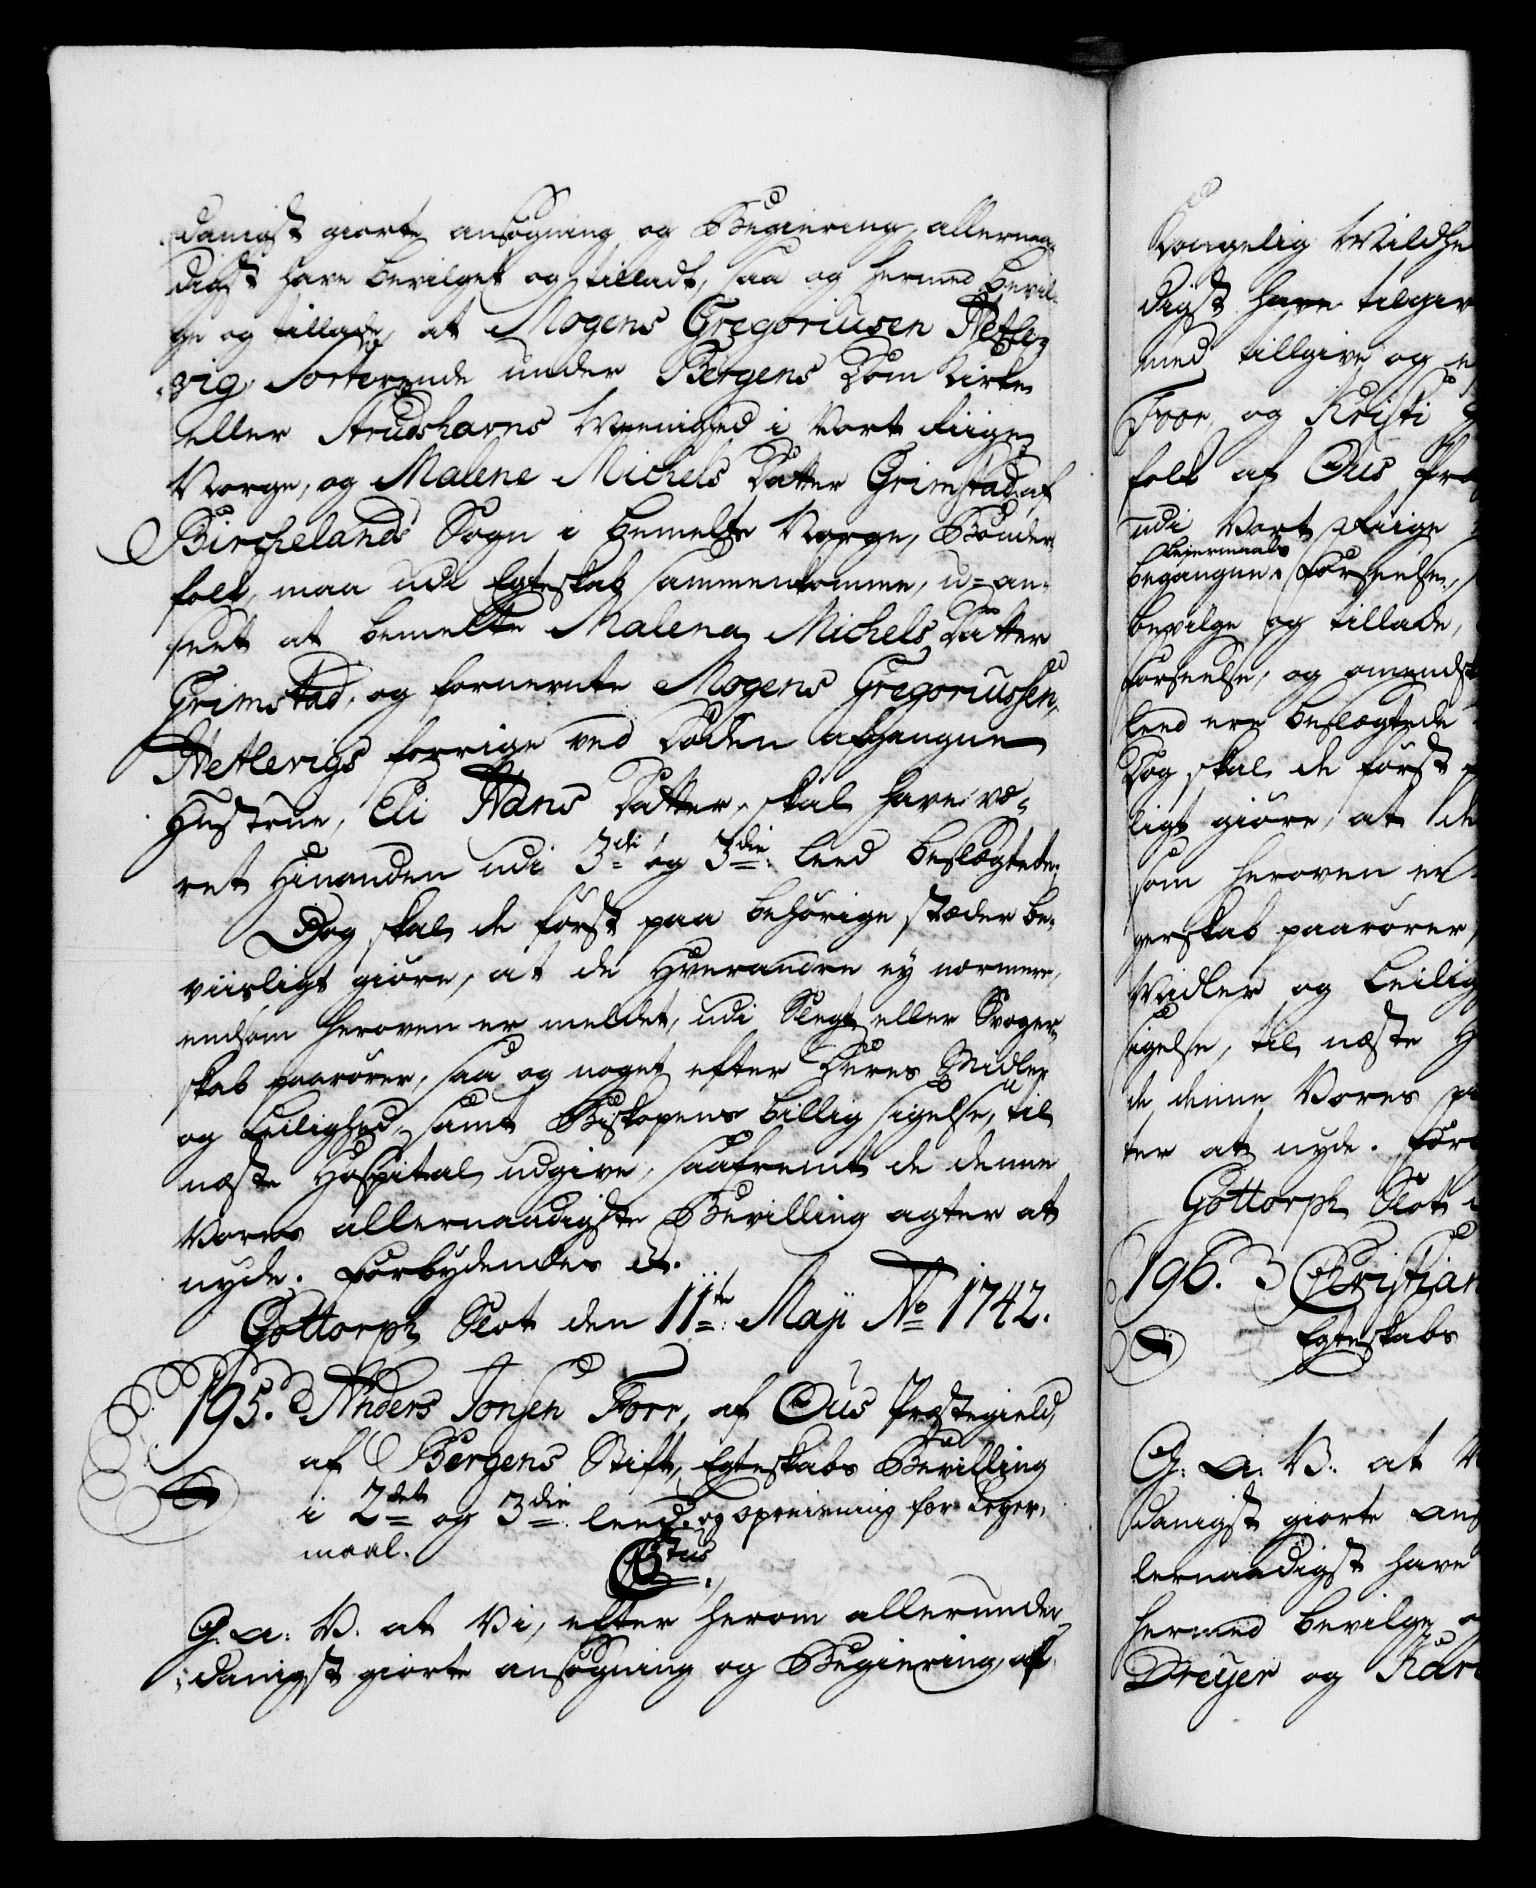 danigst giorte ansøgning og Begiering, allernaa-
digst have bevilget og tilladt, saa og hermed bevil-
ge og tillade, at Mogens Gregoriusen Netle-
vig, Sorterende under Bergens Dom Kirke
eller Strudshavns Meenighed i Vort Riige
Norge, og Malene Michels Datter Grimstad af
Birchelands Sogn i bemelte Norge, Bønder-
folk, maa udi Egteskab sammenkomme, u-an-
seet at bemelte Malena Michels Datter
Grimstad, og fornevnte Mogens Gregoriussen
Netlevigs forrige ved Døden afgangne
Hustrue, Eli Hans Datter, skal have væ-
ret hinanden udi 3die og 3die: Leed beslægtede;
Dog skal de først paa behørige stæder be-
viisligt giøre, at de hverandre ey nærmere,
end som heroven er meldet, udi Slegt eller Svoger-
skab paarører, saa og noget efter deres Midler
og Leilighed, samt Biskopens billig sigelse, til
næste Hospital udgive, saafremt de denne
Vores allernaadigste Bevilling agter at
nyde. Forbydendes etc.
Gottorph Slot den 11te: Maji Ao 1742.
195. Anders Jonsen Forr, af Ous Præstegield,
af Bergens Stift, Egteskabs Bevilling
i 2det og 3die leed. og opreisning for Leyer-
maal.
Gr: a: V. at Vi, efter herom allerunder-
danigst giorte ansøgning og Begiering, af
Kongelig Mildhe
digst have tilgiv
med tillgive og e
Forr, og Kristi
folk af Ous Præ
udi Vort Riige
Leiermaals
begangne Forseelse,
bevilge og tillade,
Forseelse, og omendsk
leed ere beslægtede
Dog skal de først
ligt giøre, at de
som heroven er
gerskab paarører,
Midler og Leilig
sigelse, til næste H
de denne Vores
ter at nyde. For
Gottorph Slot
196. Christian
Egteskabs
G: a: V: at V
danigst giorte ans
lernaadigst have
hermed bevilge o
Dreyer og Kar